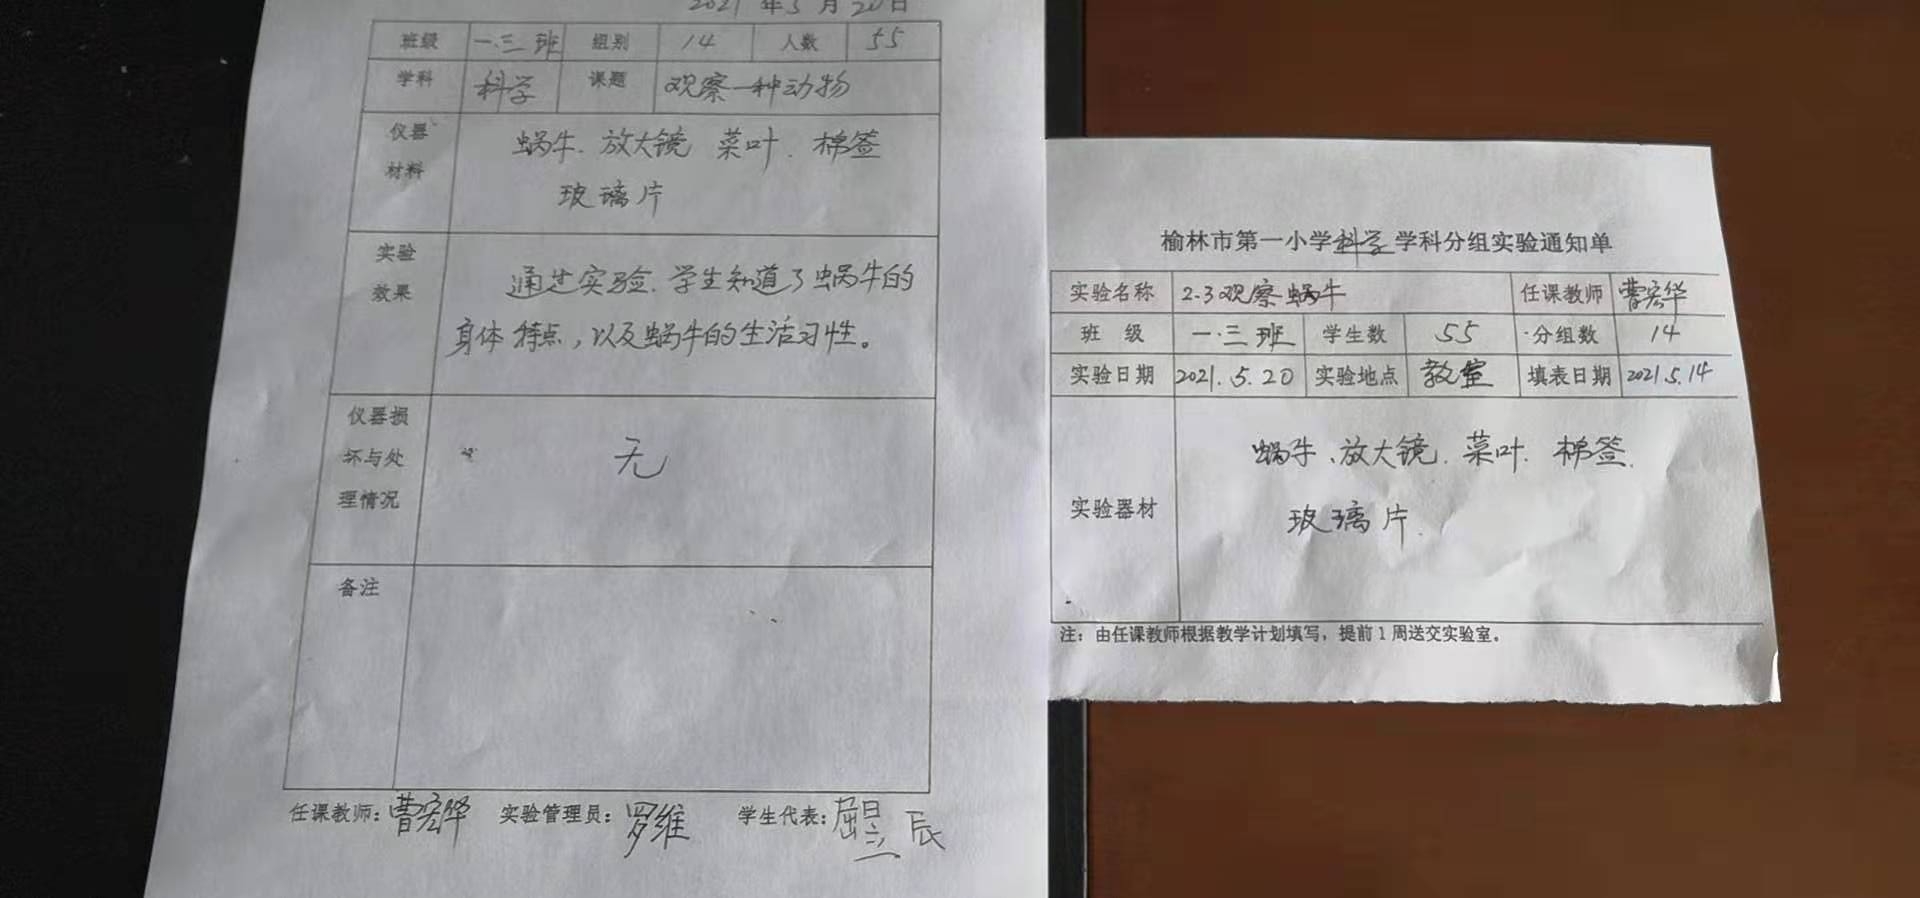 2021 年 5 月 20 日
班级 一.三班 组别 14 人数 55
学科 科学 课题 观察一种动物
仪器
材料
蜗牛、放大镜 菜叶、棉签
玻璃片
实验
效果
通过实验、学生知道了蜗牛的
身体特点，以及蜗牛的生活习性。
仪器损
坏与处
理情况
无
备注
任课教师：曹宏华 实验管理员：罗维 学生代表：屈昱辰
榆林市第一小学科学学科分组实验通知单
实验名称 2.3观察蜗牛 任课教师 曹宏华
班 级 一.三班 学生数 55 分组数 14
实验日期 2021.5.20 实验地点 教室 填表日期 2021.5.14
实验器材
蜗牛、放大镜、菜叶、棉签、
玻璃片.
注：由任课教师根据教学计划填写，提前1周送交实验室。